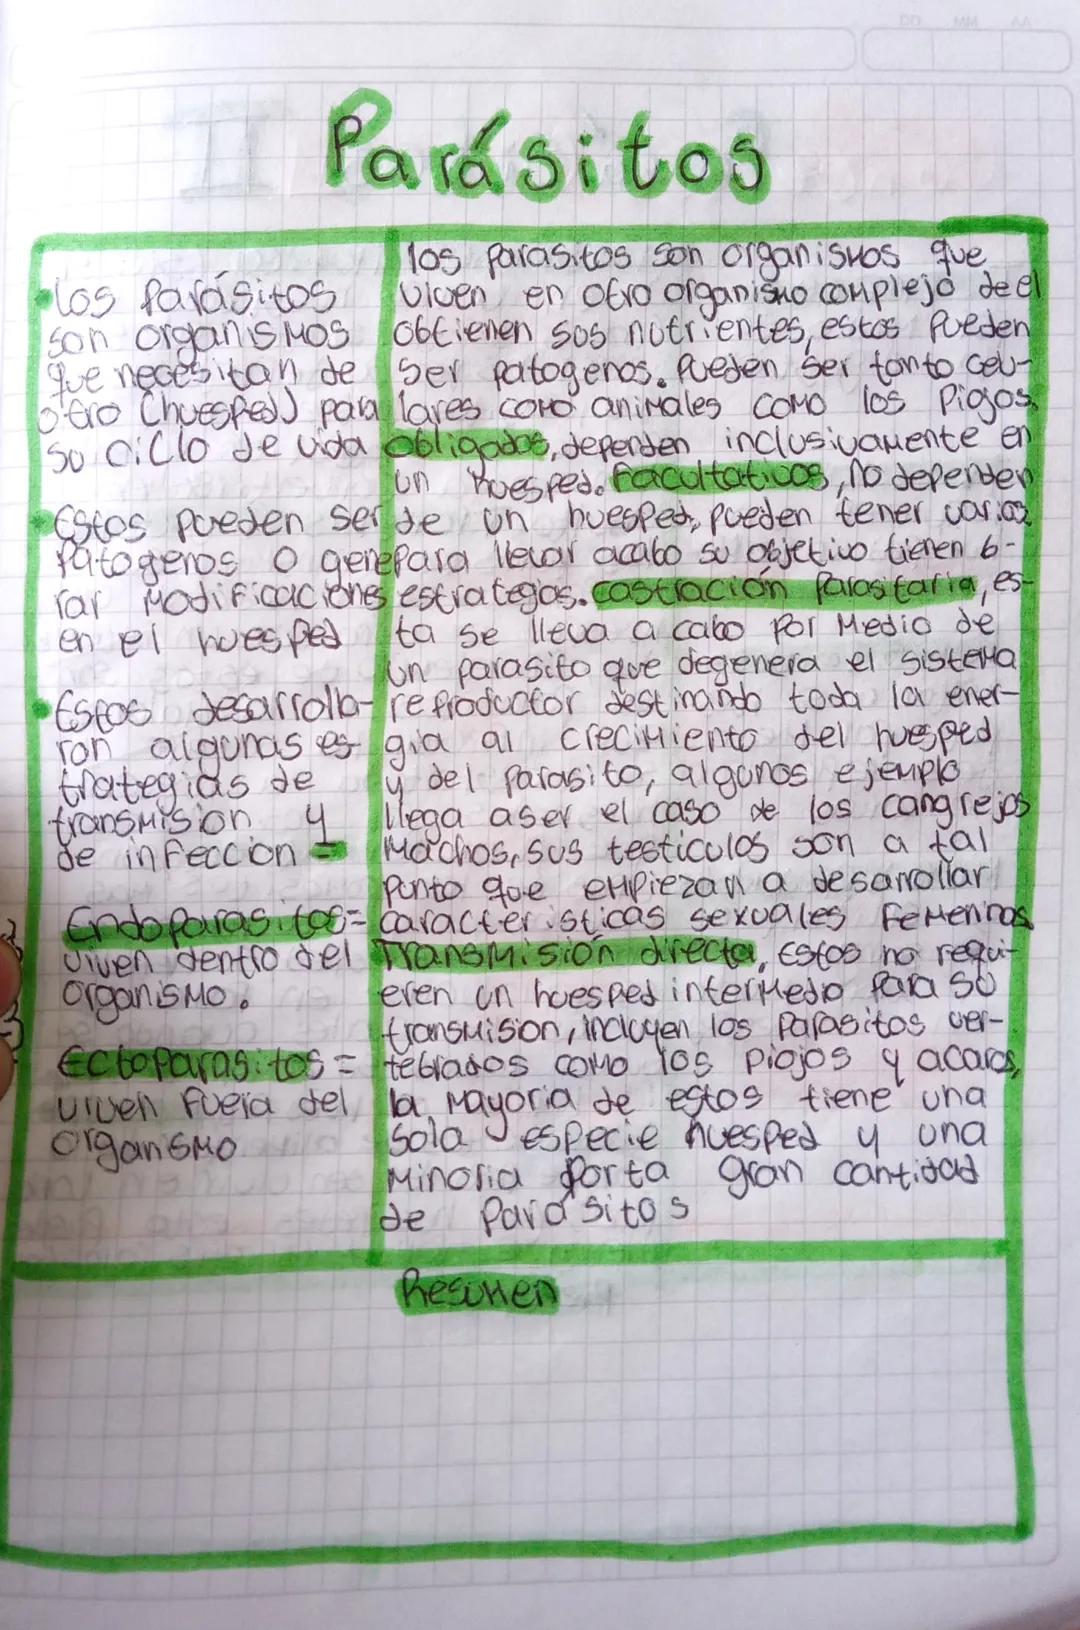 AA MM DD
Parásitos
•los Parásitos
son organismos
que necesitan de
otro (huesped) para
su ciclo de vida
•Estos pueden ser
patogenos o gene
rar modificaciones
en el huesped
•Estos desarrolla-
ron algunas es-
trategias de
transmision y
de infeccion =
Endoparasitos=
viven dentro del
organismo.
Ectoparasitos=
viven fuera del
organismo
los parasitos son organismos que
viven en otro organismo complejo de el
obtienen sus nutrientes, estos pueden
ser patogenos. Pueden ser tanto celu-
lares como animales como los Piojos.
obligados, dependen inclusivamente en
un huesped. Facultativos, no dependen
de un huesped, pueden tener varias
para llevar acabo su objetivo tienen 6-
estrategas. castración Parasitaria, es-
ta se lleva a cabo por medio de
un parasito que degenera el sistema
reproductor destinando toda la ener-
gia al crecimiento del huesped
y del parasito, algunos ejemplo
llega aser el caso de los cangrejos
machos, sus testiculos son a tal
punto que empiezan a desarrollar
caracteristicas sexuales femeninas
Transmisión directa, Estos no requi-
eren un huesped intermedio para su
transmision, incluyen los parasitos ver-
tebrados como los piojos y acaros,
la mayoria de estos tiene una
sola especie huesped y una
minoria porta gran cantidad
de parasitos
Resumen